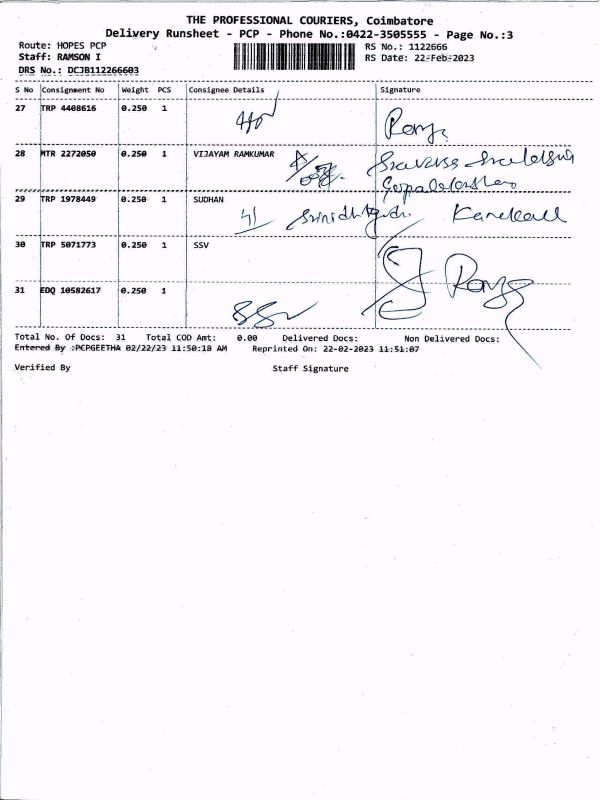 THE PROFESSIONAL COURIERS, Coimbatore
Delivery Runsheet - PCP - Phone No.:0422-3505555 - Page No.:3
Route: HOPES PCP RS No.: 1122666
Staff: RAMSON I RS Date: 22-Feb-2023
DRS No.: DCJB112266603
S No Consignment No Weight PCS Consignee Details Signature
27 TRP 4408616 0.250 1
28 MTR 2272050 0.250 1 VIJAYAM RAMKUMAR
29 TRP 1978449 0.250 1 SUDHAN
30 TRP 5071773 0.250 1 SSV
31 EDQ 10582617 0.250 1
SSV
Total No. Of Docs: 31 Total COD Amt: 0.00 Delivered Docs: Non Delivered Docs:
Entered By :PCPGEETHA 02/22/23 11:50:18 AM Reprinted On: 22-02-2023 11:51:07
Verified By Staff Signature